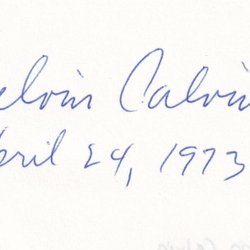 elvin Calvin
pril 24, 1973